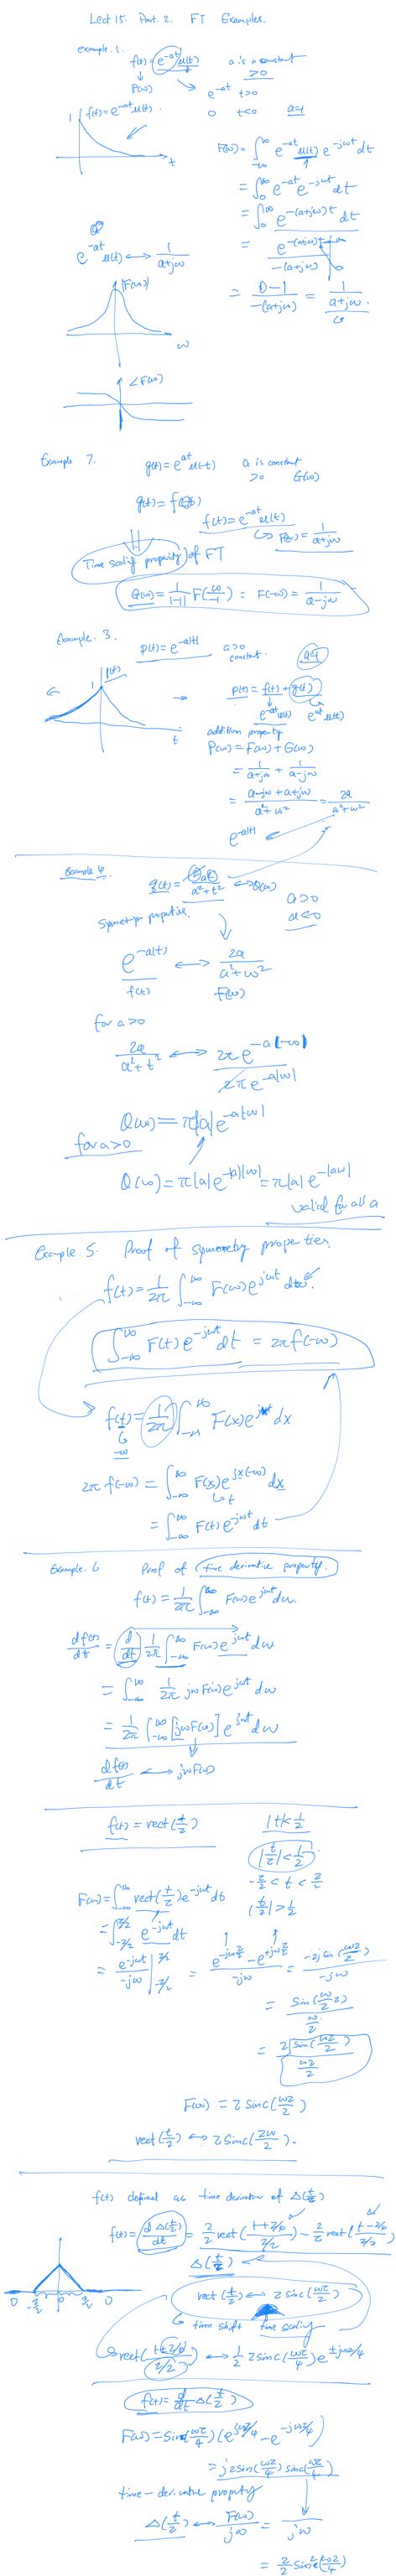 Lect 15. Part. 2. FT Examples.
example. 1.
f(t) = e^{-at} u(t) a is a constant
> 0
↓
F(ω) → e^{-at} t>0
0 t<0 a=1
1 f(t) = e^{-at} u(t).
t
F(ω) = ∫_{-∞}^{∞} e^{-at} u(t) e^{-jωt} dt
= ∫_0^∞ e^{-at} e^{-jωt} dt
= ∫_0^∞ e^{-(a+jω)t} dt
= e^{-(a+jω)t} / -(a+jω)
= (0-1) / -(a+jω) = 1/(a+jω)
e^{-at} u(t) ↔ 1/(a+jω)
|F(ω)|
ω
∠F(ω)
Example 2. g(t) = e^{at} u(-t) a is constant
> 0 G(ω)
g(t) = f(-t)
f(t) = e^{-at} u(t)
↳ F(ω) = 1/(a+jω)
Time scaling property of FT
G(ω) = 1/|-1| F(ω/-1) = F(-ω) = 1/(a-jω)
Example. 3. p(t) = e^{-a|t|} a>0
constant.
1 p(t)
t
p(t) = f(t) + g(t)
e^{-at} u(t) e^{at} u(-t)
addition property
P(ω) = F(ω) + G(ω)
= 1/(a+jω) + 1/(a-jω)
= (a-jω + a+jω)/(a²+ω²) = 2a/(a²+ω²)
e^{-a|t|}
Example 4. q(t) = |a|/(a²+t²) ↔ Q(ω)
a>0
a<0
symmetry properties.
e^{-a|t|} ↔ 2a/(a²+ω²)
f(t) F(ω)
for a>0
2a/(a²+t²) ↔ 2π e^{-a|-ω|}
2π e^{-a|ω|}
Q(ω) = π|a| e^{-a|ω|}
for a>0
Q(ω) = π|a| e^{-|a||ω|} = π|a| e^{-|aω|}
valid for all a
Example. 5. Proof of symmetry properties.
f(t) = 1/2π ∫_{-∞}^{∞} F(ω) e^{jωt} dω.
∫_{-∞}^{∞} F(t) e^{-jωt} dt = 2π f(-ω)
f(t) = 1/2π ∫_{-∞}^{∞} F(x) e^{jxt} dx
-ω
2π f(-ω) = ∫_{-∞}^{∞} F(x) e^{jx(-ω)} dx
↳ t
= ∫_{-∞}^{∞} F(t) e^{-jωt} dt
Example. 6 Proof of time derivative property.
f(t) = 1/2π ∫_{-∞}^{∞} F(ω) e^{jωt} dω.
df(t)/dt = d/dt 1/2π ∫_{-∞}^{∞} F(ω) e^{jωt} dω
= ∫_{-∞}^{∞} 1/2π jω F(ω) e^{jωt} dω
= 1/2π ∫_{-∞}^{∞} [jωF(ω)] e^{jωt} dω
df(t)/dt ↔ jωF(ω)
f(t) = rect(t/τ) |t|<1/2
|t/τ|<1/2
-τ/2 < t < τ/2
|t/τ|>1/2
F(ω) = ∫_{-∞}^{∞} rect(t/τ) e^{-jωt} dt
= ∫_{-τ/2}^{τ/2} e^{-jωt} dt
= e^{-jωt}/-jω |_{-τ/2}^{τ/2} = (e^{-jωτ/2} - e^{+jωτ/2})/-jω = -2j sin(ωτ/2)/-jω
= sin(ωτ/2)/(ω/2)
= τ sin(ωτ/2)/(ωτ/2)
F(ω) = τ sinc(ωτ/2)
rect(t/τ) ↔ τ sinc(τω/2).
f(t) defined as time derivative of Δ(t/τ)
f(t) = dΔ(t/τ)/dt = 2/τ rect((t+τ/4)/(τ/2)) - 2/τ rect((t-τ/4)/(τ/2))
Δ(t/τ)
0 -τ/2 0 τ/2 0
rect(t/τ) ↔ τ sinc(ωτ/2)
↳ time shift time scaling
rect((t±τ/4)/(τ/2)) ↔ 1/2 τ sinc(ωτ/4) e^{±jωτ/4}
f(t) = d/dt Δ(t/τ)
F(ω) = sinc(ωτ/4) (e^{jωτ/4} - e^{-jωτ/4})
= j2 sin(ωτ/4) sinc(ωτ/4)
time-derivative property
Δ(t/τ) ↔ F(ω)/jω = /jω
= τ/2 sinc²(ωτ/4)